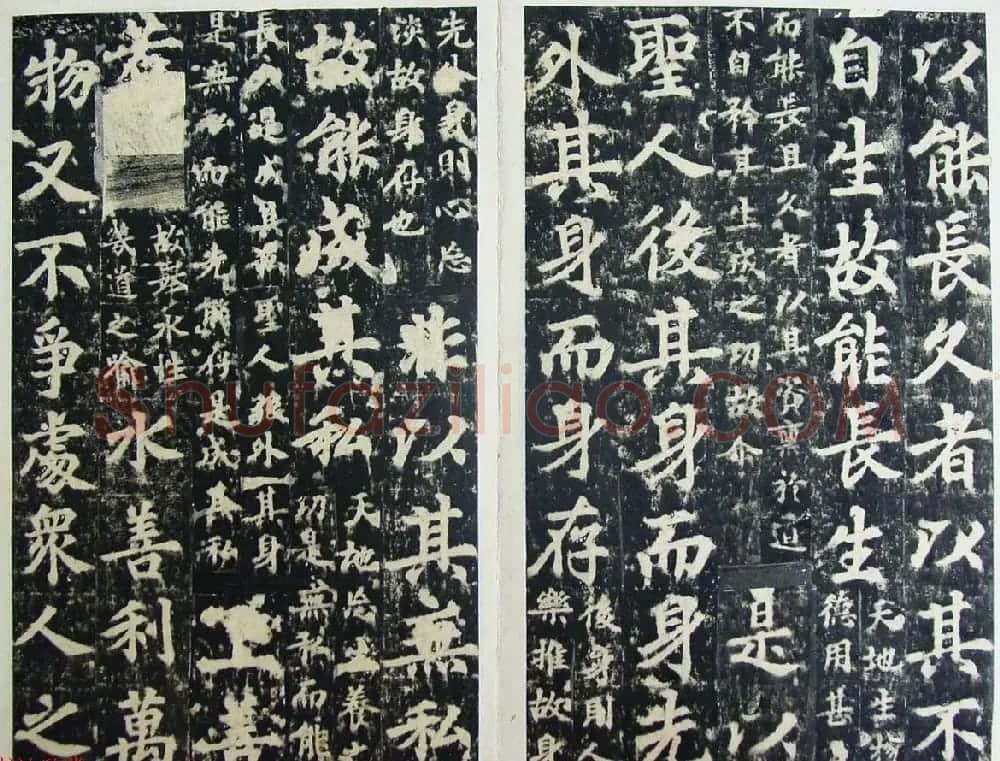 以能長久者以其不
自生故能長生
天地生物
德用甚
能長且久者以其資稟於道
不自矜其生成之功故尒
是以
聖人後其身而身先
外其身而身存
後身則人
樂推故身
先外身則心恬
淡故身存也
非以其無私
故能成其私
天地忘生養
功是無私而能
長久是成其私聖人後外其身
是無私而能先能存是成其私
上善
若
故舉水性
幾道之喻
水善利萬
物又不爭處衆人之
Shufaziliao.COM